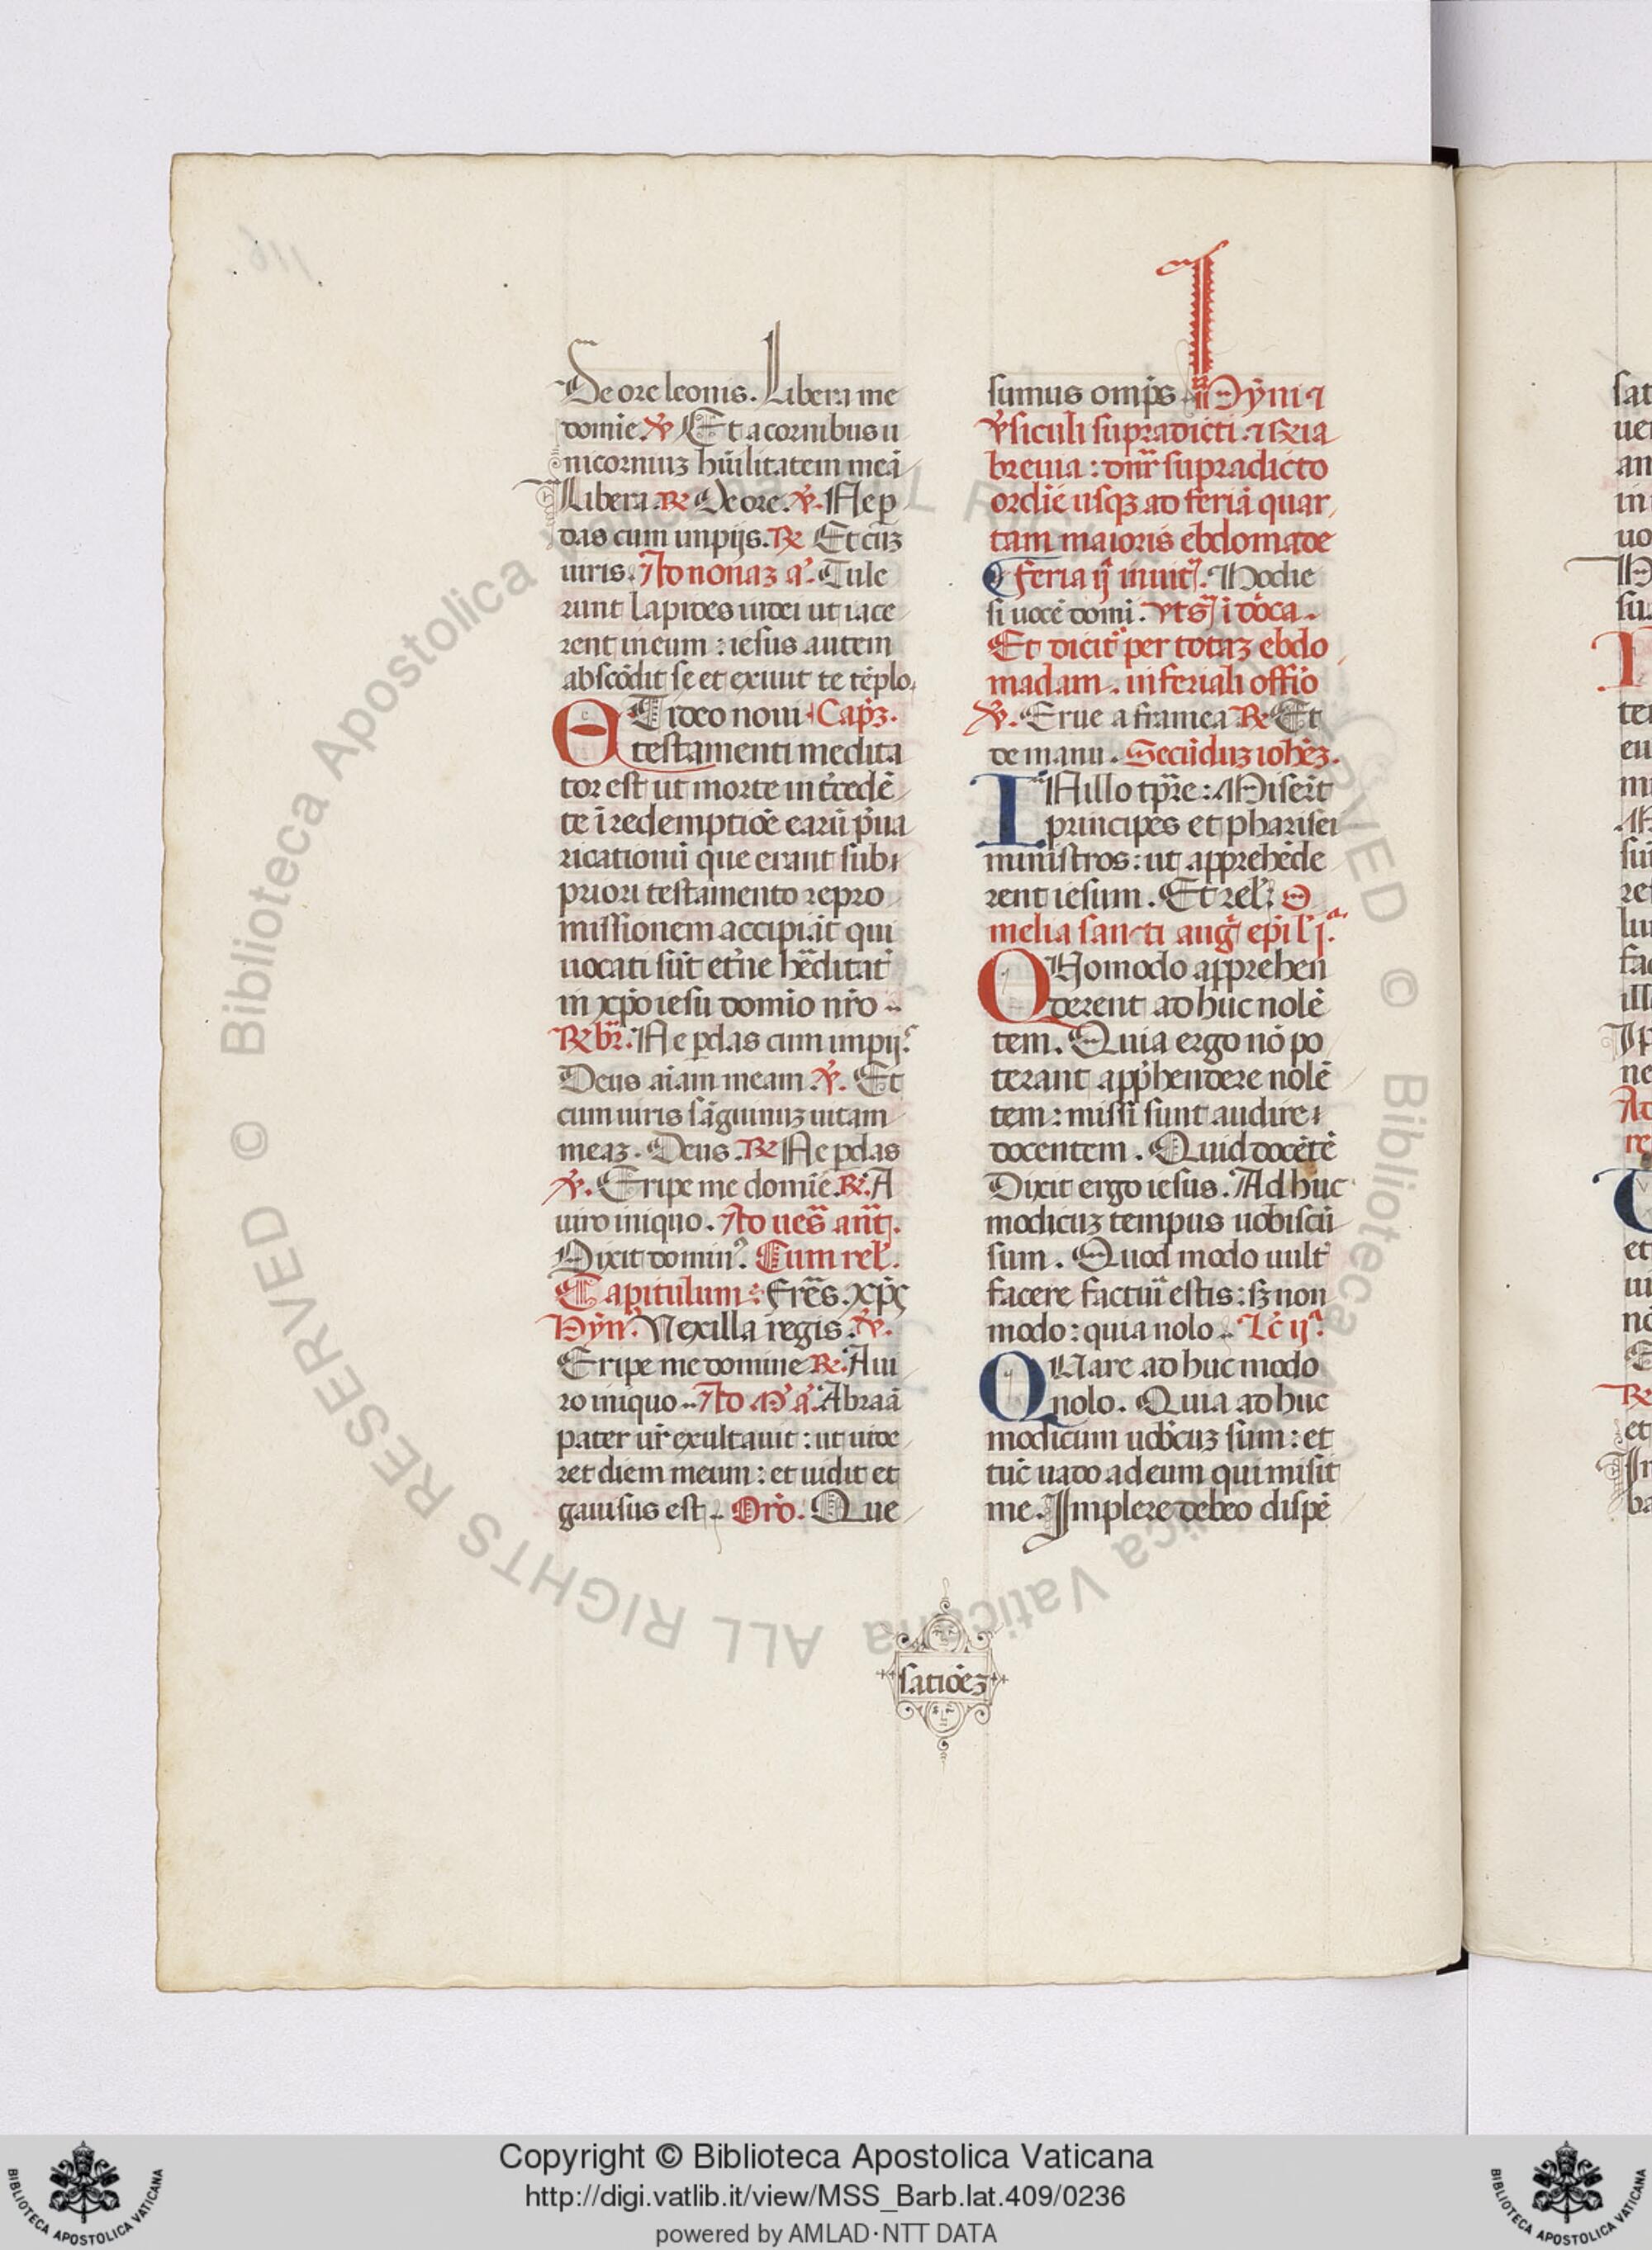 De ore leonis. Libera me
domīe. ℣. Et a cornibus u
nicorniuz hūilitatem meā
Libera. ℞ De ore. ℣. Ne p̲
das cum impijs. ℞ Et cūz
uiris. Ad nonaz a᷑. Tule
runt lapides iudei ut iace
rent in eum : iesus autem
abscōdit se et exiuit de tēplo.
ET ideo noui Cap̄z.
testamenti media
tor est ut morte int̄cedē
te ī redemptiōe earū p̄ua
ricationū que erant sub
priori testamento repro
missionem accipiāt qui
uocati sūt et̄ne hēditat̄
in xp̄o iesu domīo nr̄o
℞ br̄. Ne p̲das cum impijꝰ
Deus aīam meam. ℣. Et
cum uiris sāguinuz uitam
meaz. Deus. ℞ Ne p̲das
℣. Eripe me domīe. ℞. A
uiro iniquo. Ad ues̄ an̄t.
Dixit dominꝰ. Cum rel̄.
Capitulum : Fr̄es. xp̄s
Hȳn. Vexilla regis. ℣.
Eripe me domine ℞. A ui
ro iniquo. Ad M᷑ a᷑. Abraā
pater ur̄ exultauit : ut uide
ret diem meum : et uidit et
gauisus est. Or̄o. Que
sumus omp̄s Hȳni ⁊
℣siculi supradicti ⁊ ℞ia
breuia : dn̄r supradicto
ordīe usqz ad feriā quar
tam maioris ebdomade
Feria ij inuit̄. Hodie
si uocē domī. vt sᷓ ī dōca.
Et dicit᷑ per totaz ebdo
madam. in feriali offīo
℣. Erue a framea ℞ Et
de manu. Secūduz ioh̄ez.
IN illo tp̄re : Miser̄t
principes et pharisei
ministros : ut apprehēde
rent iesum. Et rel̄. O
melia sancti auḡ ep̄i l̄ jᵃ.
QUomodo apprehen
derent adhuc nolē
tem. Quia ergo nō po
terant app̄hendere nolē
tem : missi sunt audire
docentem. Quid docētē
Dixit ergo iesus. Adhuc
modicuz tempus uobiscū
sum. Quod modo uult᷑
facere facturi estis : sz non
modo : quia nolo. Lc̄ ijᵃ.
QUare adhuc modo
nolo. Quia adhuc
modicum uob̄cuz sum : et
tūc uado ad eum qui misit
me. Implere debeo dispē
satiōez
Copyright © Biblioteca Apostolica Vaticana
http://digi.vatlib.it/view/MSS_Barb.lat.409/0236
powered by AMLAD·NTT DATA